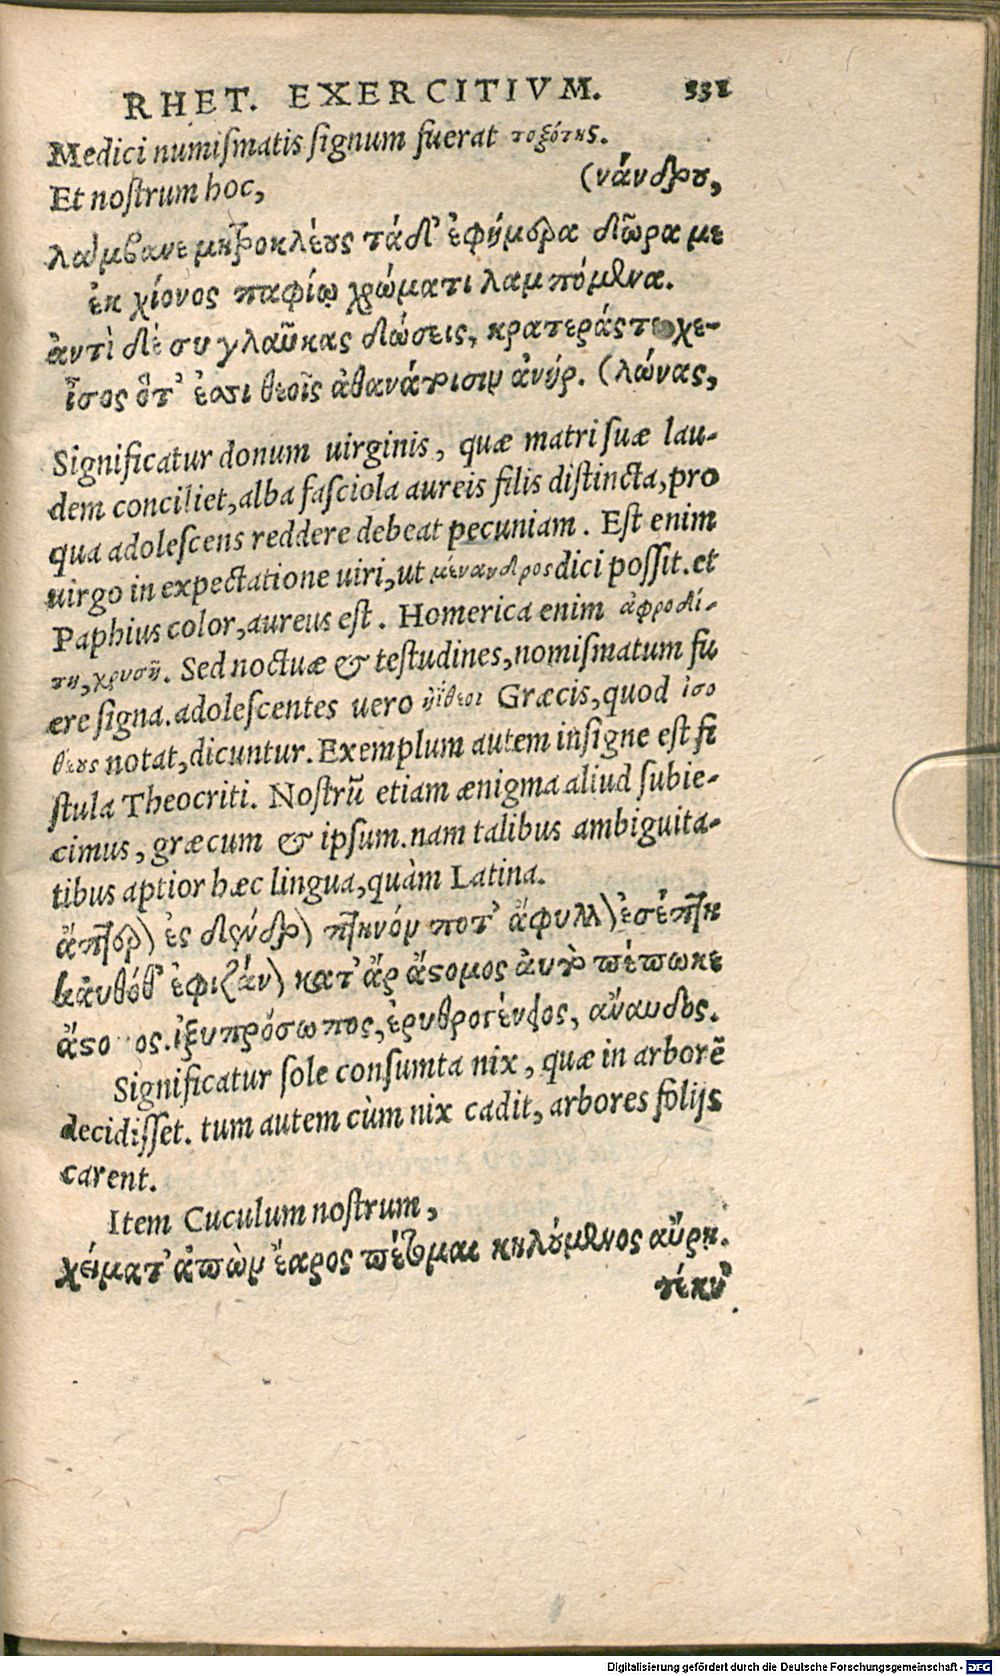 RHET. EXERCITIVM. 331
Medici numiſmatis ſignum fuerat τοξότης.
Et noſtrum hoc, (νάνδρου,
λάμβανε μητροκλέους τάδ' ἐφήμερα δῶρα με
ἐκ χίονος παφίῳ χρώματι λαμπόμενα.
ἀντὶ δὲ συ γλαῦκας δώσεις, κρατεράς τε χε-
ἶσος ὅτ' ἐστι θεοῖς ἀθανάτοισιν ἀνήρ. (λώνας,
Significatur donum uirginis, quæ matri ſuæ lau-
dem conciliet, alba faſciola aureis filis diſtincta, pro
qua adoleſcens reddere debeat pecuniam. Eſt enim
uirgo in expectatione uiri, ut μένανδρος dici poſſit. et
Paphius color, aureus eſt. Homerica enim ἀφροδί-
τη, χρυσῆ. Sed noctuæ & teſtudines, nomiſmatum fu
ere ſigna. adoleſcentes uero ἠΐθεοι Græcis, quod ἰσο
θεους notat, dicuntur. Exemplum autem inſigne eſt fi
ſtula Theocriti. Noſtrū etiam ænigma aliud ſubie-
cimus, græcum & ipſum. nam talibus ambiguita-
tibus aptior hæc lingua, quàm Latina.
ἄπτερον ἐς δένδρον πτηνόν ποτ' ἄφυλλον ἐσέπτη
κᾀυθόθ' ἐφιζάνον κατ' ἄρ ἄστομος ἀυτὸ πέπωκε
ἄστο ος. ἰξυπρόσωπος, ἐρυθρογένειος, αὔαυδος.
Significatur ſole conſumta nix, quæ in arborē
decidiſſet. tum autem cùm nix cadit, arbores folijs
carent.
Item Cuculum noſtrum,
χείματ' ἀπὼν ἔαρος πέτομαι κηλούμενος αὔρῃ.
Digitalisierung gefördert durch die Deutsche Forschungsgemeinschaft - DFG